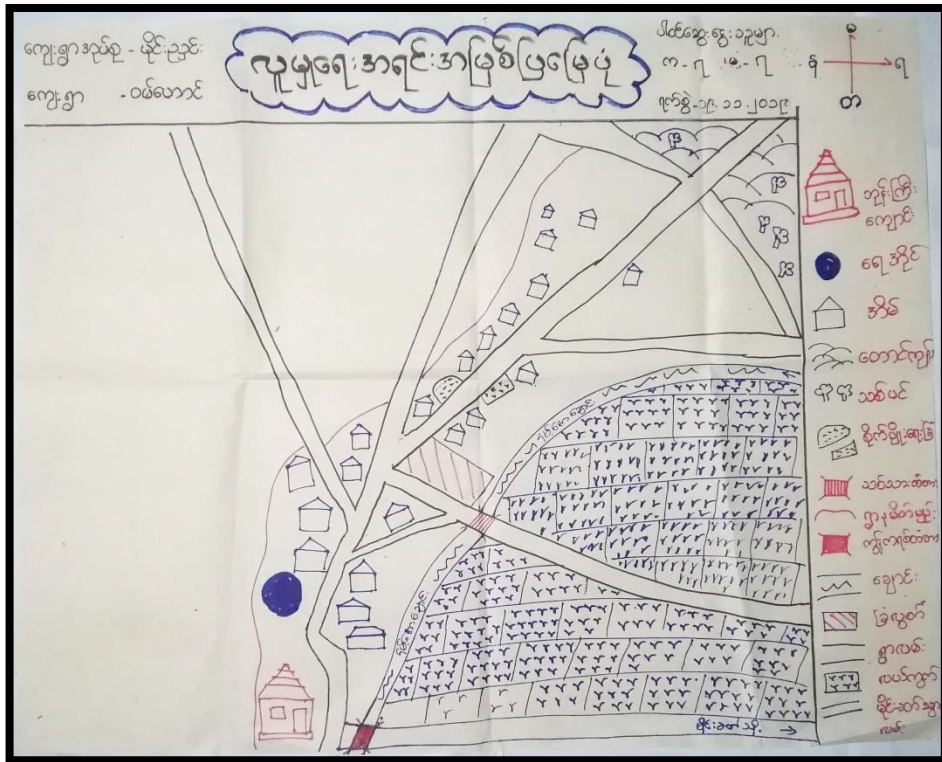 ကျေးရွာအုပ်စု - ဖိုင်းညှင်း
ကျေးရွာ - ဝမ်ဟောင်
လူမှုရေးအရင်းအမြစ်ပြမြေပုံ
ပါဝင်ဆွေးနွေးသူများ
က - ၇ မ - ၇
ရက်စွဲ - ၁၉.၁၁.၂၀၁၉
မ
န ရ
တ
ဘုန်းကြီး
ကျောင်း
ရေအိုင်
အိမ်
တောင်ကုန်း
သစ်ပင်
စိုက်ပျိုးရေးခြံ
သစ်သားတံတား
ရွာနမိတ်မျဉ်း
ကွန်ကရစ်တံတား
ချောင်း
ခြံလွတ်
ရွာလမ်း
လယ်ကွက်
လမ်း